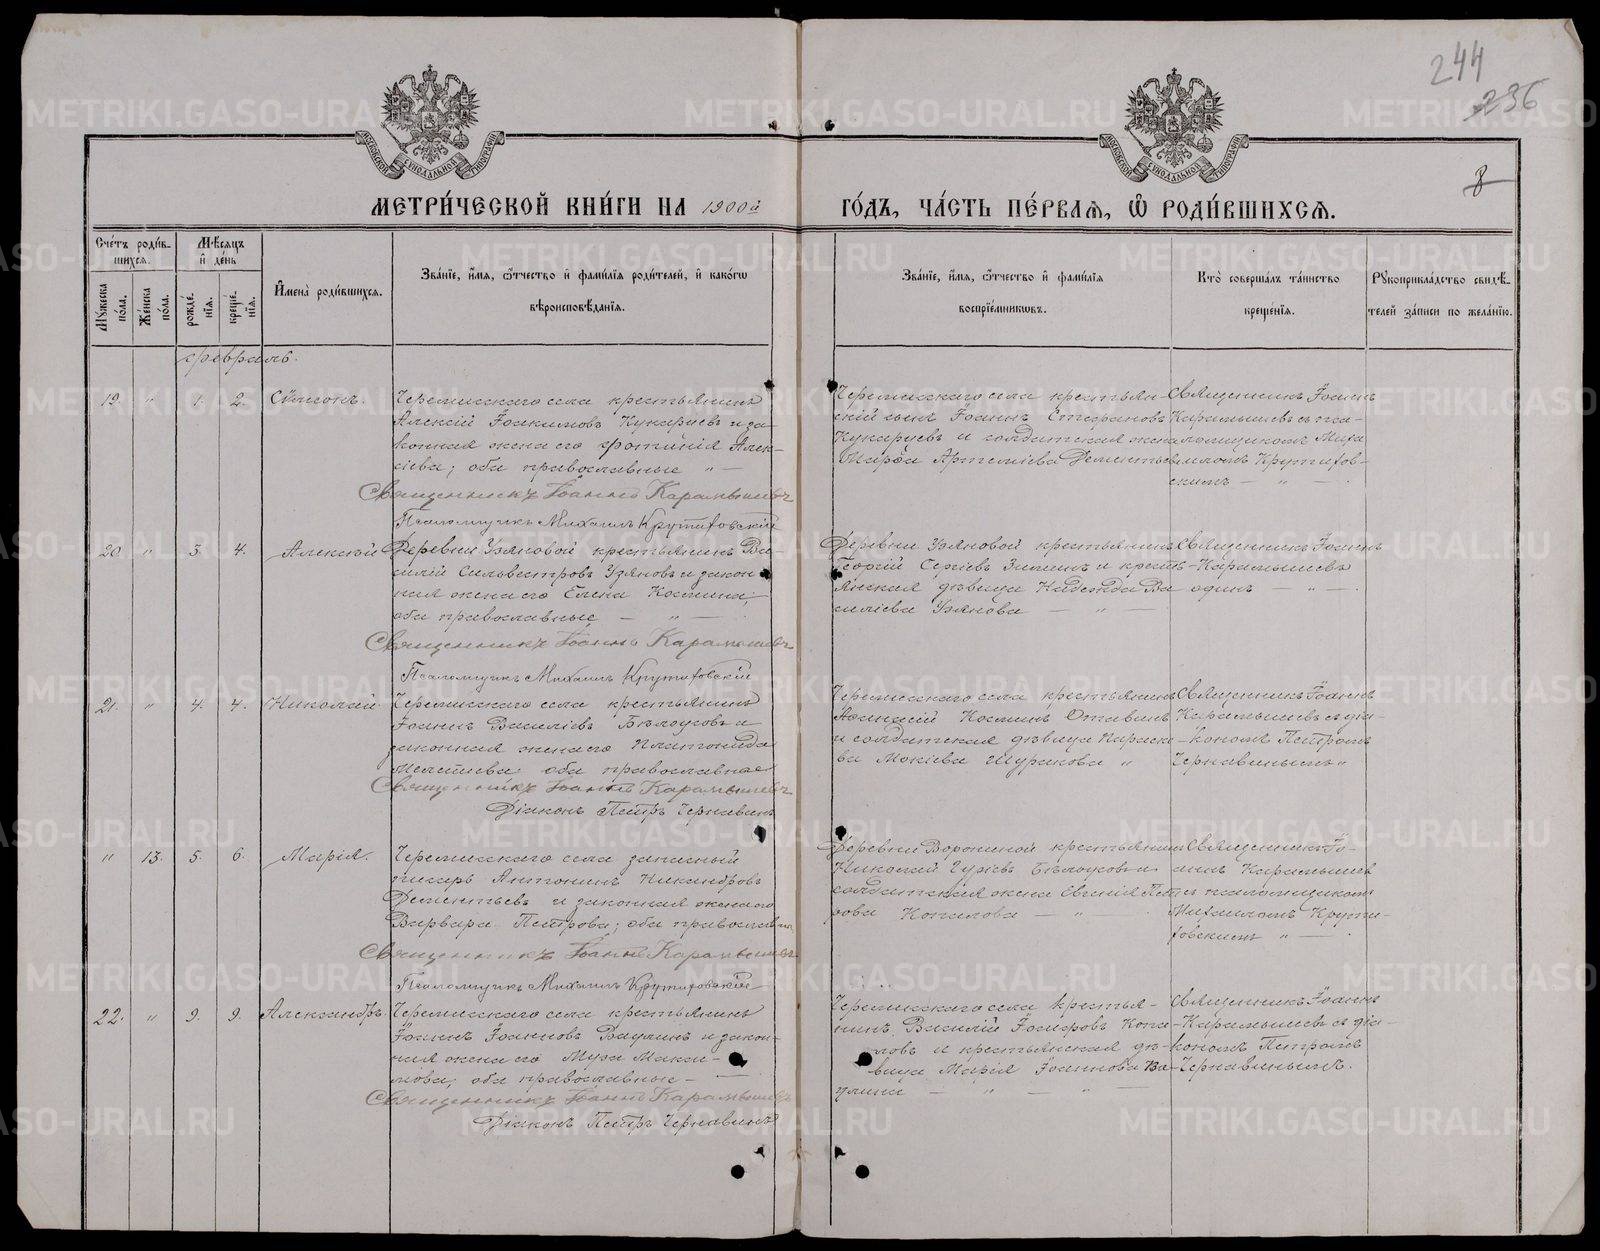 244
236
8
МОСКОВСКОЙ СУНОДАЛЬНОЙ ТИПОГРАФІИ
МОСКОВСКОЙ СУНОДАЛЬНОЙ ТИПОГРАФІИ
МЕТРИ́ЧЕСКОЙ КНИ́ГИ НА 1900й ГО́ДЪ, ЧА́СТЬ ПЕ́РВАЯ, Ѿ РОДИ́ВШИХСЯ.
Сче́тъ роди́в-
шихся.
Мѣ́сяцъ
и҆ де́нь
Му́жеска
по́ла.
Же́нска
по́ла.
рожде́-
нїя.
креще́-
нїя.
И҆мена̀ роди́вшихся.
Зва́нїе, и҆́мя, ѻ҆́тчество и҆ фами́лїя роди́телей, и҆ како́гѡ
вѣроисповѣ́данїя.
Зва́нїе, и҆́мя, ѻ҆́тчество и҆ фами́лїя
воспрїе́мникѡвъ.
Кто̀ соверша́лъ та́инство
креще́нїя.
Рꙋкоприкла́дство свидѣ́-
телей за́писи по жела́нїю.
февраль.
19. " 1. 2. Сѵмеонъ.
Черемисскаго села крестьянинъ
Алексій Іоакимовъ Кукарцевъ и за-
конная жена его Фотинія Алек-
сіева; оба православные " —
Священникъ Іоаннъ Карамышевъ
Псаломщикъ Михаилъ Крутиховскій
Черемисскаго села крестьян-
скій сынъ Іоаннъ Стефановъ
Кукарцевъ и солдатская жена
Марѳа Артеміева Дементьева
Священникъ Іоаннъ
Карамышевъ съ пса-
ломщикомъ Миха-
иломъ Крутихов-
скимъ — " — .
20. " 3. 4. Алексій
Деревни Узяновой крестьянинъ Ва-
силій Сильвестровъ Узяновъ и закон-
ная жена его Елена Космина;
оба православные — " — .
Священникъ Іоаннъ Карамышевъ
Псаломщикъ Михаилъ Крутиховскій
Деревни Узяновой крестьянинъ
Георгій Сергіевъ Зиминъ и кресть-
янская дѣвица Надежда Ва-
силіева Узянова — " —
Священникъ Іоаннъ
Карамышевъ
одинъ — " — .
21. " 4. 4. Николай
Черемисскаго села крестьянинъ
Іоаннъ Василіевъ Бѣлоусовъ и
законная жена его Платонида
Мелетіева оба православные
Священникъ Іоаннъ Карамышевъ
Діаконъ Петръ Чернавинъ
Черемисскаго села крестьянинъ
Аѳанасій Косминъ
и солдатская дѣвица Параске-
ва Мокіева Шуракова "
Священникъ Іоаннъ
Карамышевъ съ діа-
кономъ Петромъ
Чернавинымъ "
" 13. 5. 6. Марія.
Черемисскаго села запасный
писарь Антонинъ Никандровъ
Дементьевъ и законная жена его
Варвара Петрова; оба православн.
Священникъ Іоаннъ Карамышевъ
Псаломщикъ Михаилъ Крутиховскій
Деревни Ворониной крестьянинъ
Николай Гуріевъ Бѣлоусовъ и
солдатская жена Евгенія Пет-
рова Копалова — "
Священникъ Іо-
аннъ Карамышевъ
съ псаломщикомъ
Михаиломъ Крути-
ховскимъ " — .
22. " 9. 9. Александръ.
Черемисскаго села крестьянинъ
Іоаннъ Іоанновъ Ваулинъ и закон-
ная жена его Муза Макси-
мова; оба православные —
Священникъ Іоаннъ Карамышевъ
Діаконъ Петръ Чернавинъ
Черемисскаго села крестья-
нинъ Василій Копа-
ловъ и крестьянская дѣ-
вица Марія Іоаннова Ва-
улина — " —
Священникъ Іоаннъ
Карамышевъ съ діа-
кономъ Петромъ
Чернавинымъ.
METRIKI.GASO-URAL.RU